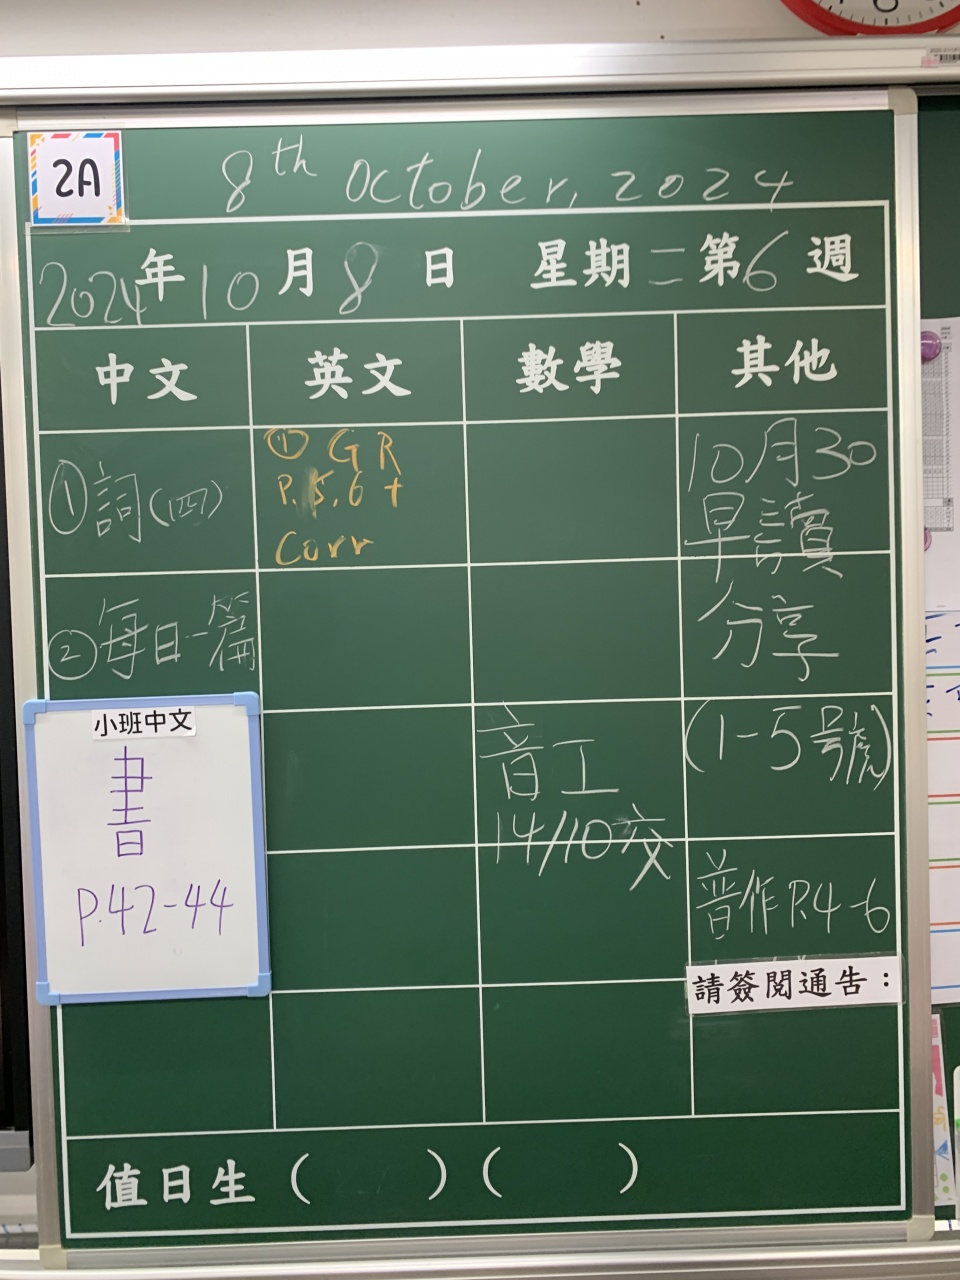 2A
8th October, 2024
2024年10月8日 星期二 第6週
中文 英文 數學 其他
①詞(四)
②每日一篇
小班中文
書
P.42-44
① GR
P.5,6 +
Corr
音工
14/10交
10月30
早讀
分享
(1-5號)
普作P.4-6
請簽閱通告：
值日生 ( ) ( )